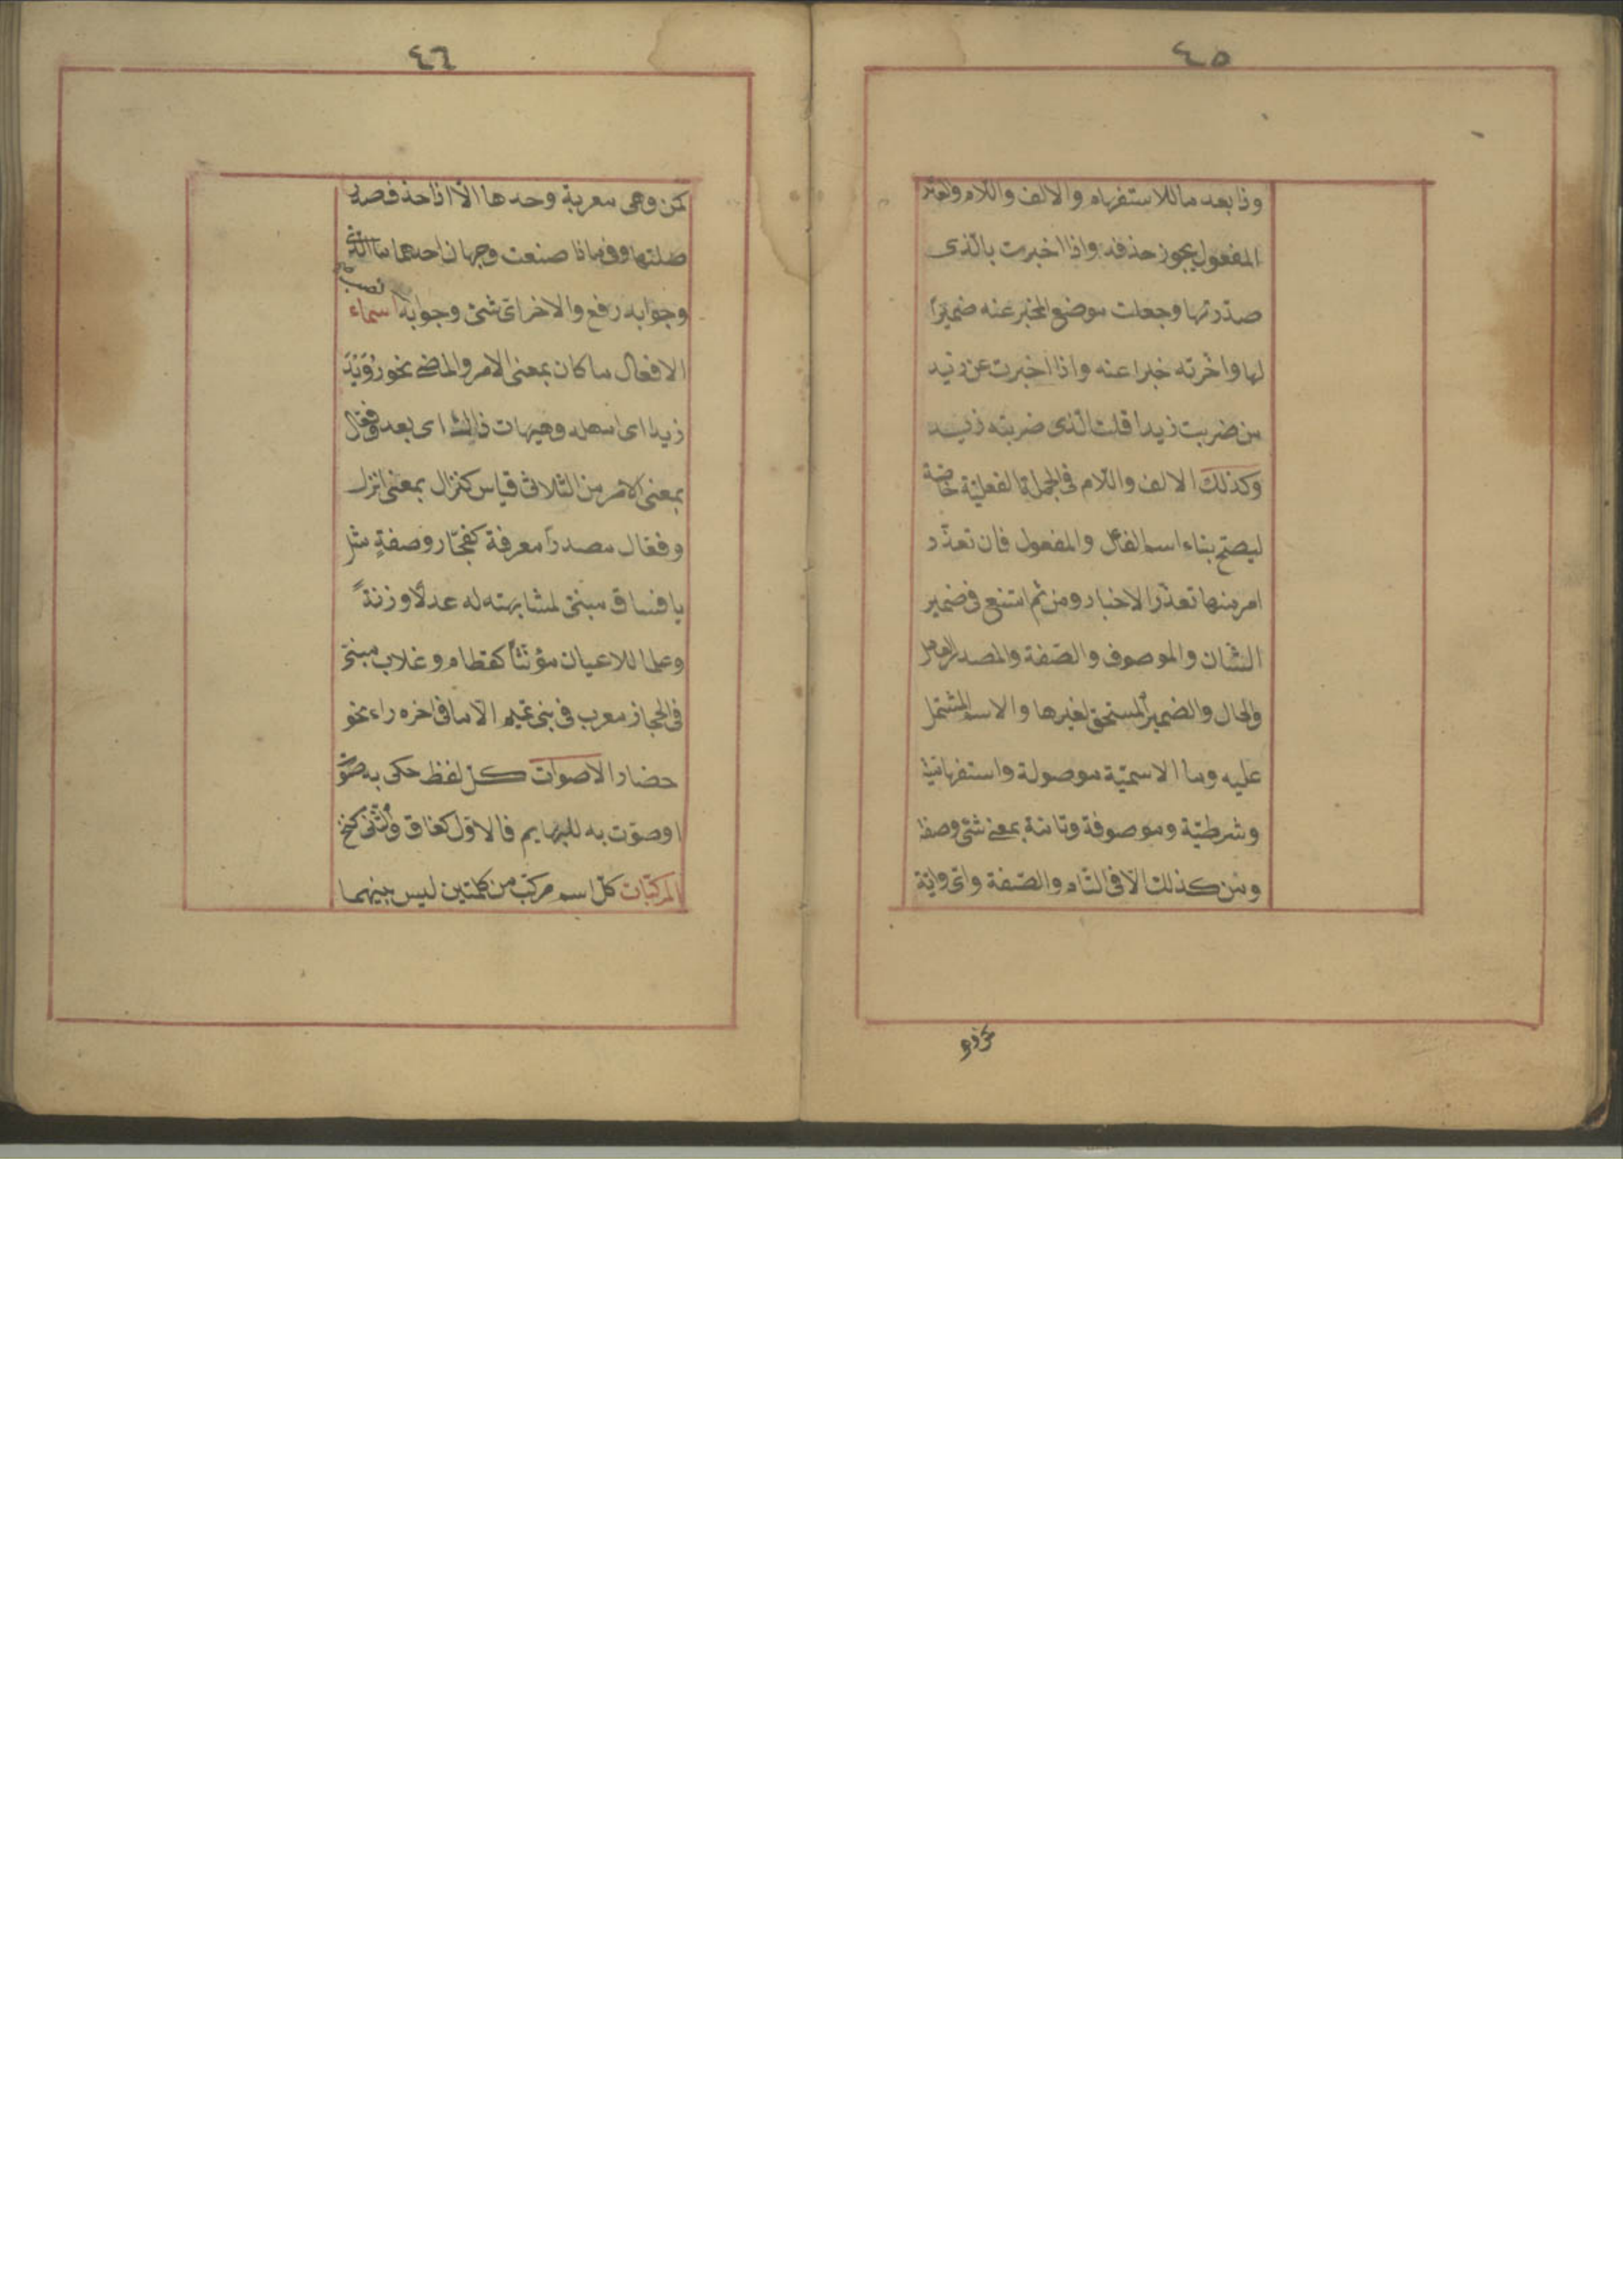 ٤٥
وذا بعد ما للاستفهام والالف واللام والعائد
المفعول يجوز حذفه واذا اخبرت بالذى
صدرتها وجعلت موضع المخبر عنه ضميرًا
لها واخرته خبرا عنه واذا اخبرت عن زيد
من ضربت زيدا قلت الذى ضربته زيد
وكذلك الالف واللام فى الجملة الفعليّة خاصّة
ليصح بناء اسم الفاعل والمفعول فان تعذّر
امر منها تعذّر الاخبار ومن ثم امتنع فى ضمير
الشان والموصوف والصّفة والمصدر العامل
والحال والضمير المستحق لغيرها والاسم المشتمل
عليه وما الاسميّة موصولة واستفهاميّة
وشرطيّة وموصوفة وتامّة بمعنى شئ وصفة
ومن كذلك الّا فى التام والصّفة واىّ وايّة
كمن وهى
٤٦
كمن وهى معربة وحدها الّا اذا حذف صدر
صلتها وفى ماذا صنعت وجهان احدهما ما الذى
وجوابه رفع والاخر اىّ شئ وجوابه نصب اسماء
الافعال ما كان بمعنى الامر والماضى نحو رُوَيْدَ
زيدا اى امهله وهيهات ذلك اى بعد وفعال
بمعنى الامر من الثلاثى قياس كنزال بمعنى انزل
وفعال مصدرًا معرفة كفجار وصفةٍ مثل
يا فساق مبنىّ لمشابهته له عدلًا وزنةً
وعلما للاعيان مؤنثًا كقطام وغلاب مبنىّ
فى الحجاز معرب فى بنى تميم الّا ما فى اخره راء نحو
حضار الاصوات كلّ لفظ حكى به صوت
او صوّت به للبهايم فالاوّل كغاق والثانى كنخ
المركبات كلّ اسم مركّب من كلمتين ليس بينهما